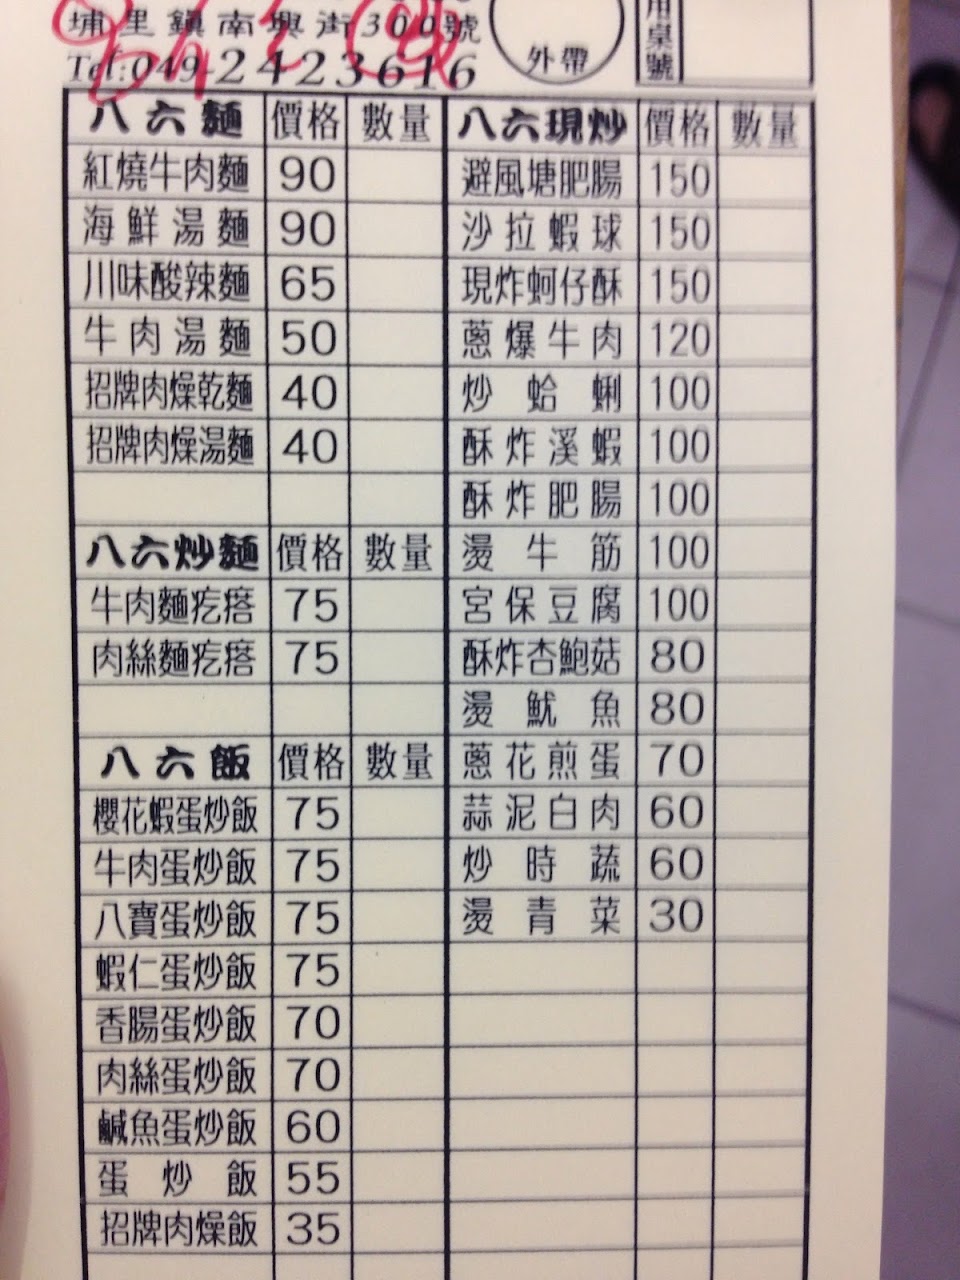 埔里鎮南興街300號
Tel:049-2423616
外帶
用桌號
八六麵 價格 數量
紅燒牛肉麵 90
海鮮湯麵 90
川味酸辣麵 65
牛肉湯麵 50
招牌肉燥乾麵 40
招牌肉燥湯麵 40
八六炒麵 價格 數量
牛肉麵疙瘩 75
肉絲麵疙瘩 75
八六飯 價格 數量
櫻花蝦蛋炒飯 75
牛肉蛋炒飯 75
八寶蛋炒飯 75
蝦仁蛋炒飯 75
香腸蛋炒飯 70
肉絲蛋炒飯 70
鹹魚蛋炒飯 60
蛋炒飯 55
招牌肉燥飯 35
八六現炒 價格 數量
避風塘肥腸 150
沙拉蝦球 150
現炸蚵仔酥 150
蔥爆牛肉 120
炒蛤蜊 100
酥炸溪蝦 100
酥炸肥腸 100
燙牛筋 100
宮保豆腐 100
酥炸杏鮑菇 80
燙魷魚 80
蔥花煎蛋 70
蒜泥白肉 60
炒時蔬 60
燙青菜 30